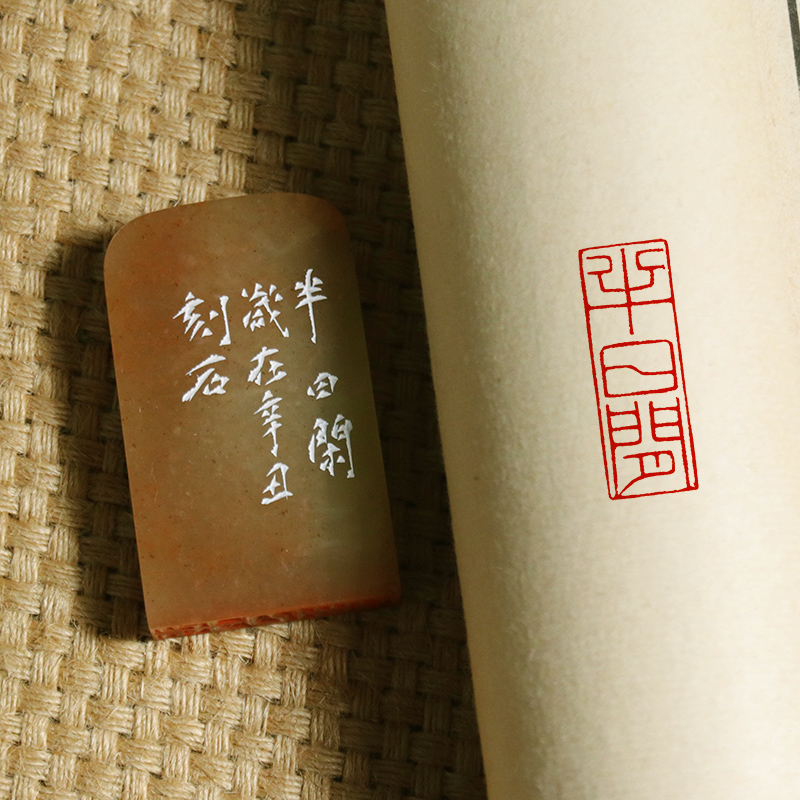 半日閑
歲在辛丑
刻石
半日閒